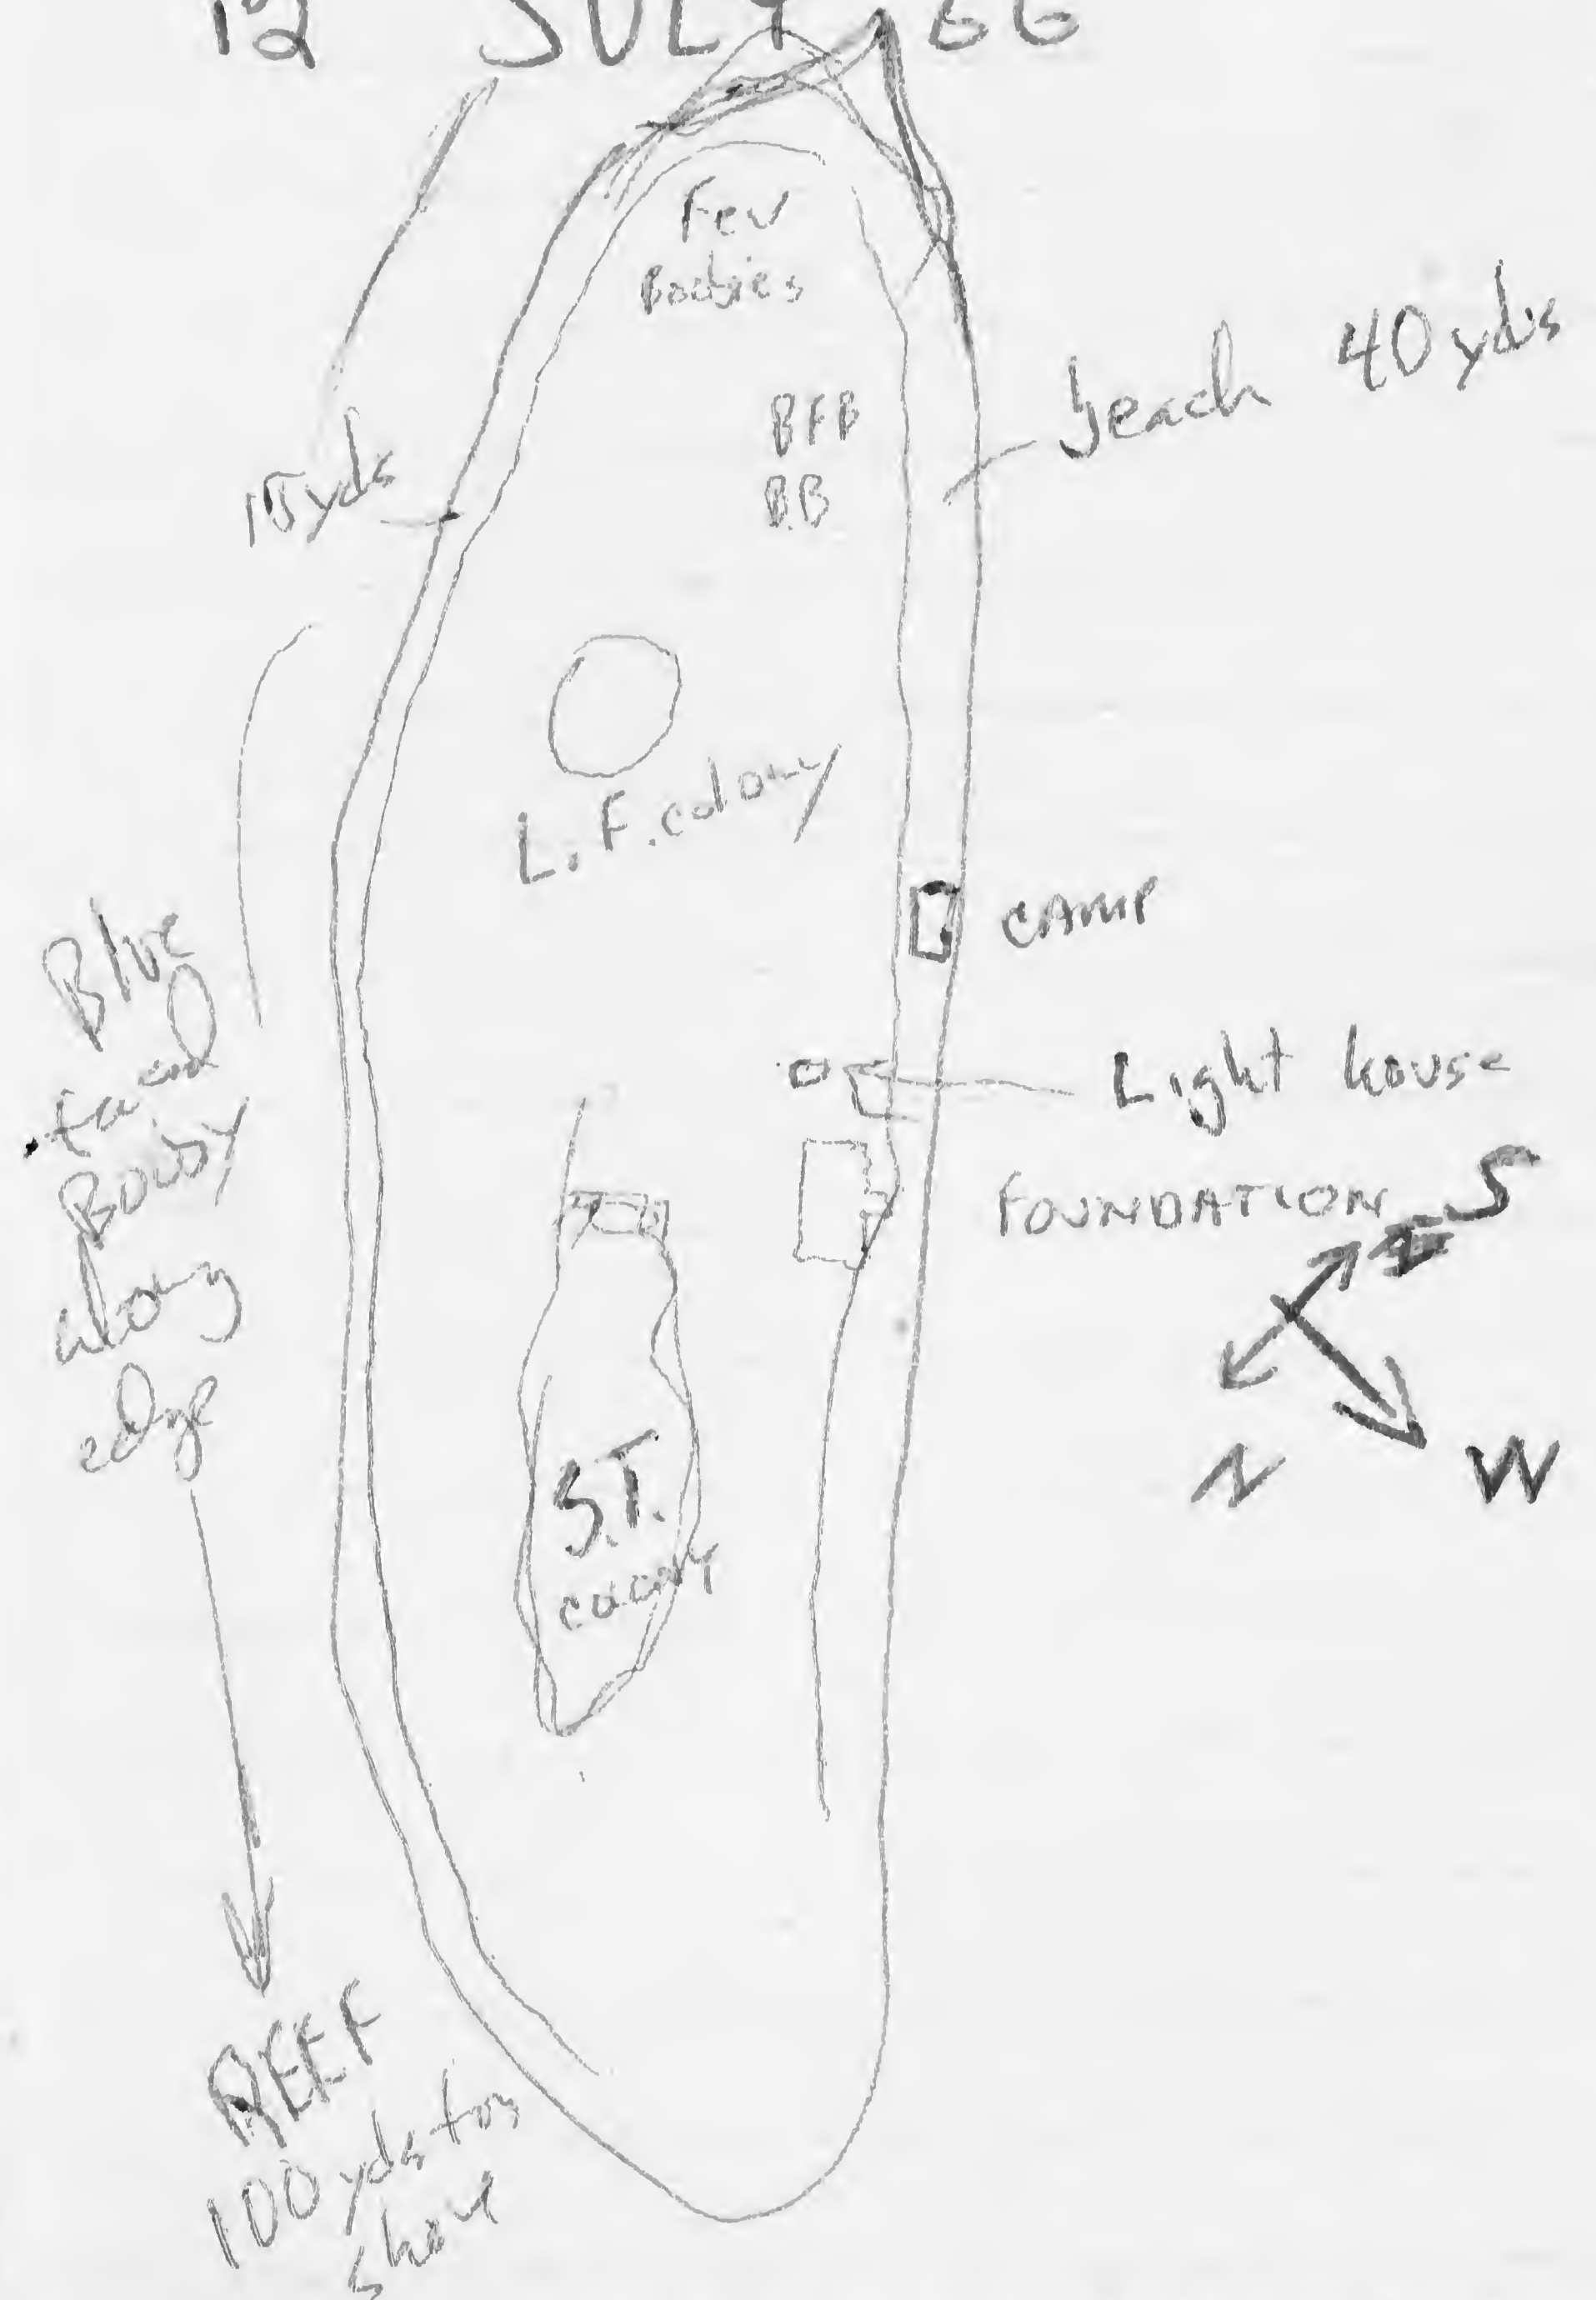 12 JULY 66
Few
Boobies
BFB
BB
beach 40 yds
15 yds
L.F. colony
CAMP
Light house
FOUNDATION
S
N
W
Blue
faced
Booby
along
edge
S.T.
colony
REEF
100 yds from
shore